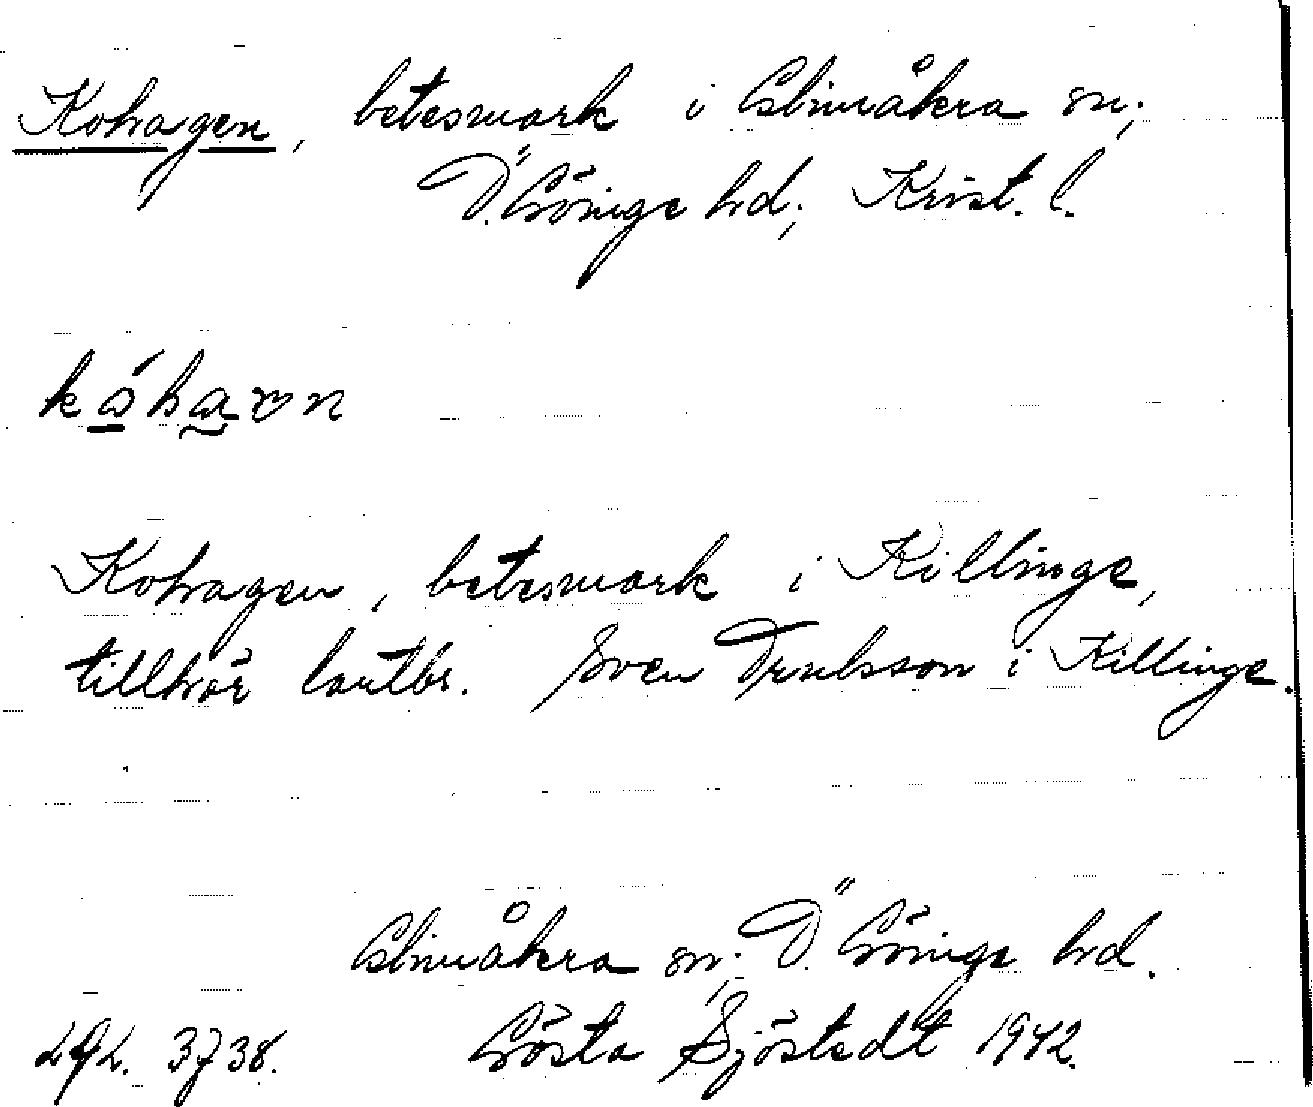 Kohagen, betesmark i Glimåkra sn;
Ö. Göinge hd; Krist. l.
Kohagen, betesmark i Killinge,
tillhör lantbr. Sven Trulsson i Killinge.
Glimåkra sn; Ö. Göinge hd.
3738. Gösta Sjöstedt 1942.